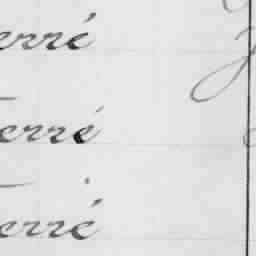 erré
erré
erré